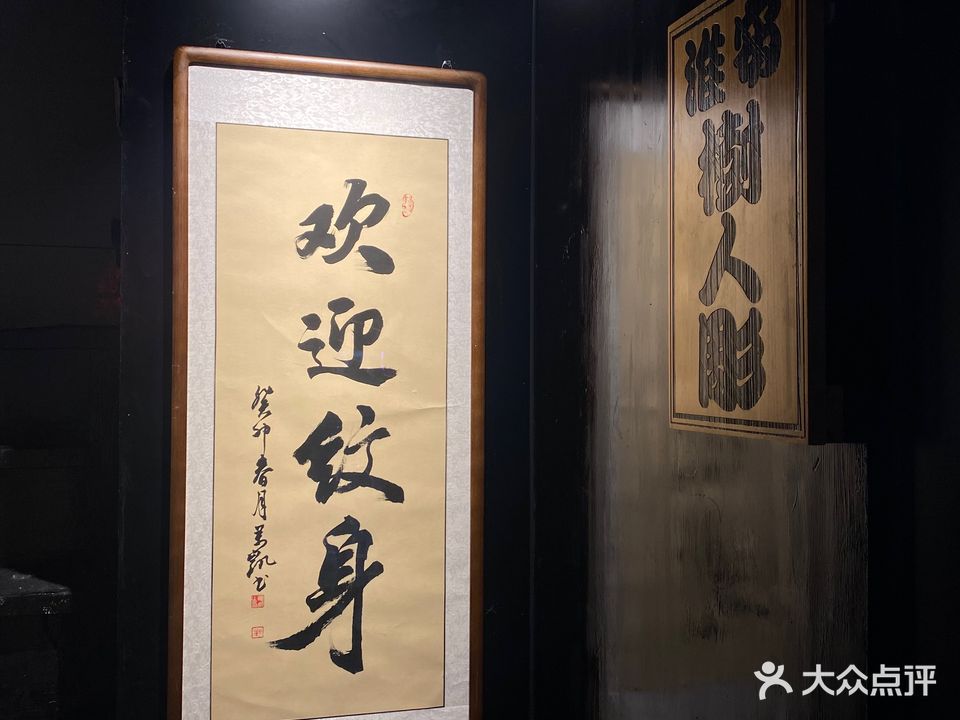 欢迎纹身
癸卯春月
淮
樹人彫
大众点评